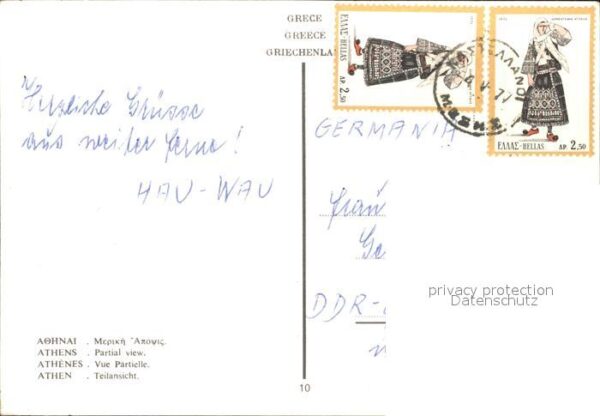 GRECE
GREECE
GRIECHENLA
ΕΛΛΑΣ-HELLAS
ΔΡ. 2,50
ΕΛΛΑΣ-HELLAS ΔΡ. 2,50
Herzliche Grüsse
aus weiter Ferne!
HAU-WAU
GERMANIA
Frau
Ge
DDR-
privacy protection
Datenschutz
ΑΘΗΝΑΙ . Μερική Ἄποψις.
ATHENS . Partial view.
ATHÈNES . Vue Partielle.
ATHEN . Teilansicht.
10